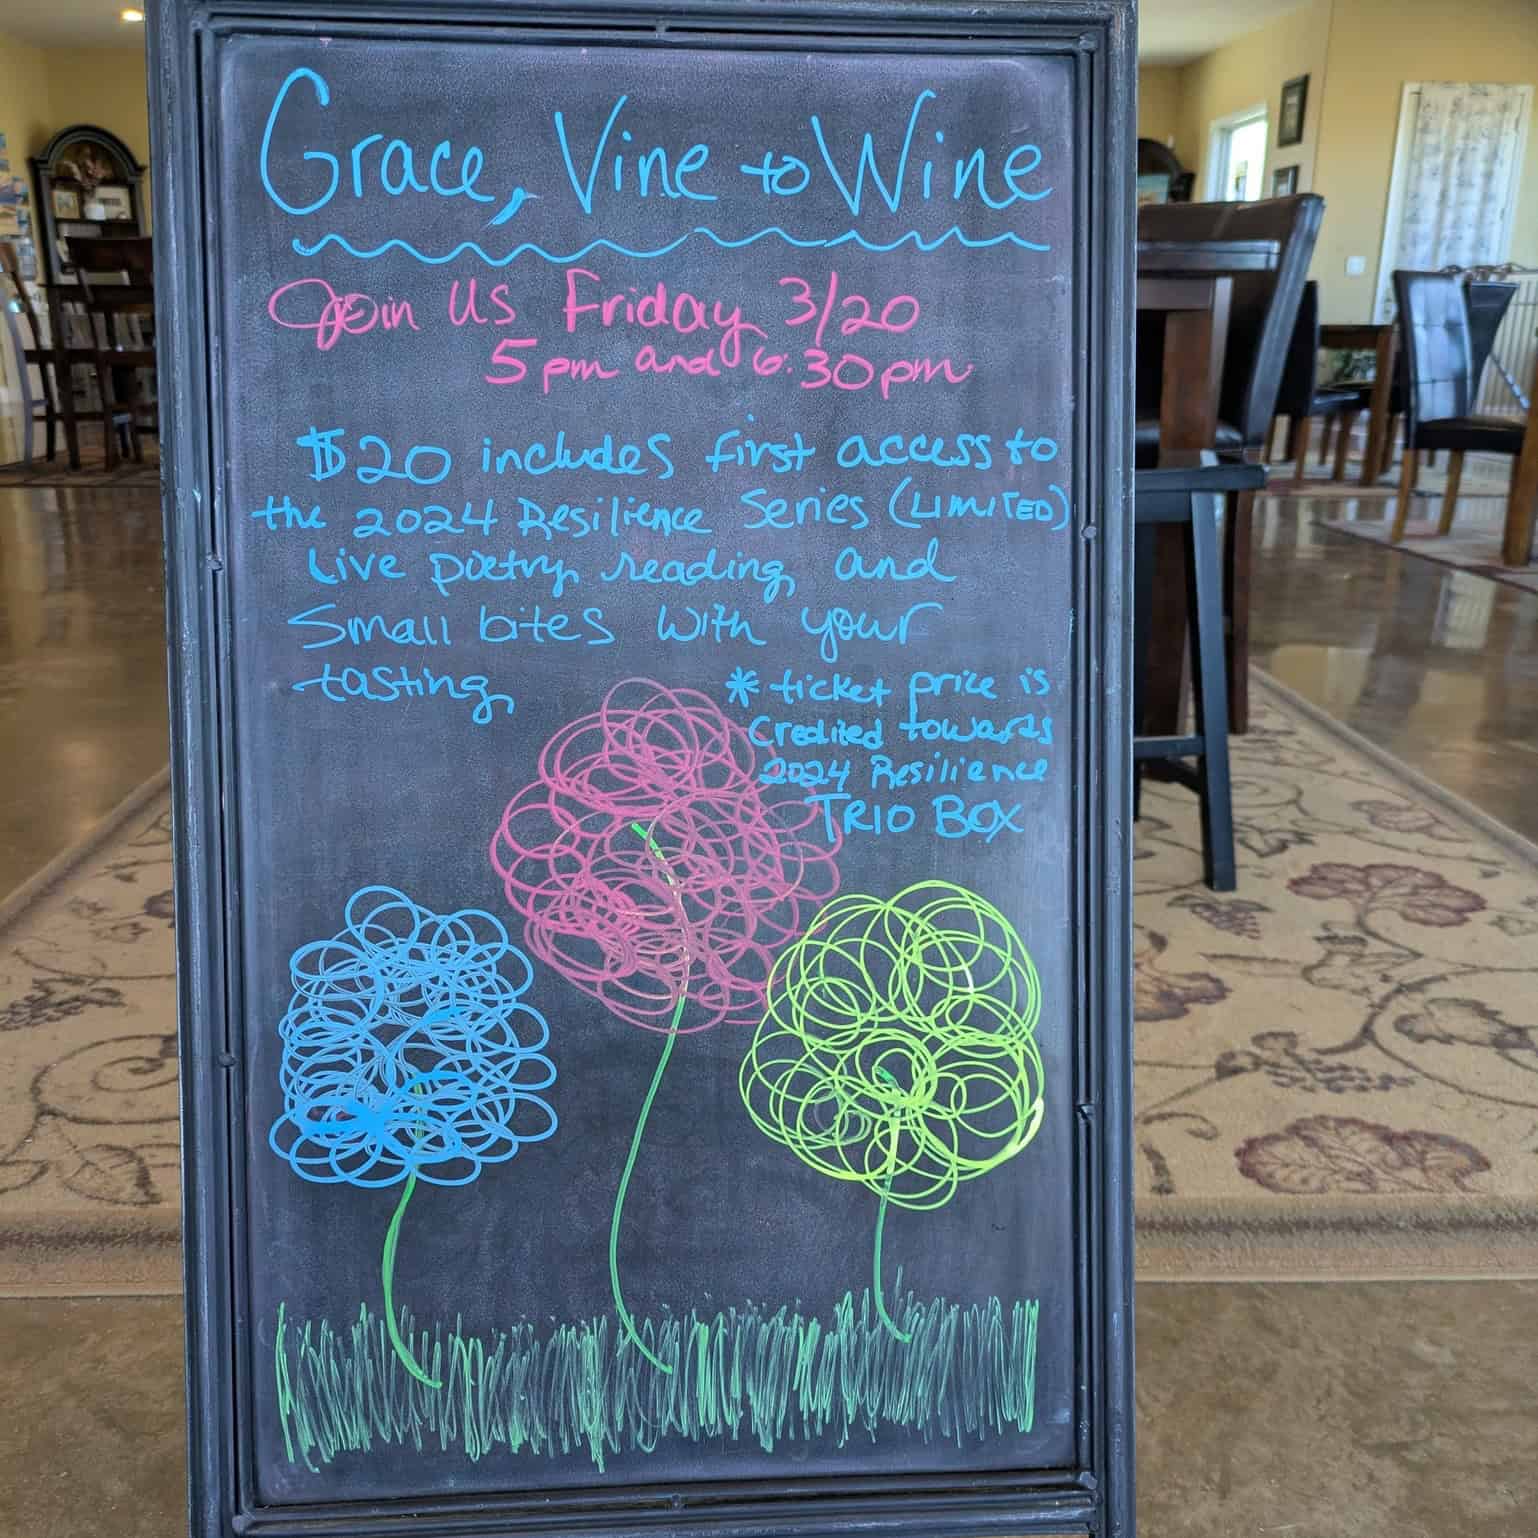 Grace, Vine to Wine
Join Us Friday 3/20
5pm and 6:30pm
$20 includes first access to
the 2024 Resilience Series (LIMITED)
Live poetry reading, and
Small bites with your
tasting
* ticket price is
Credited towards
2024 Resilience
TRIO BOX